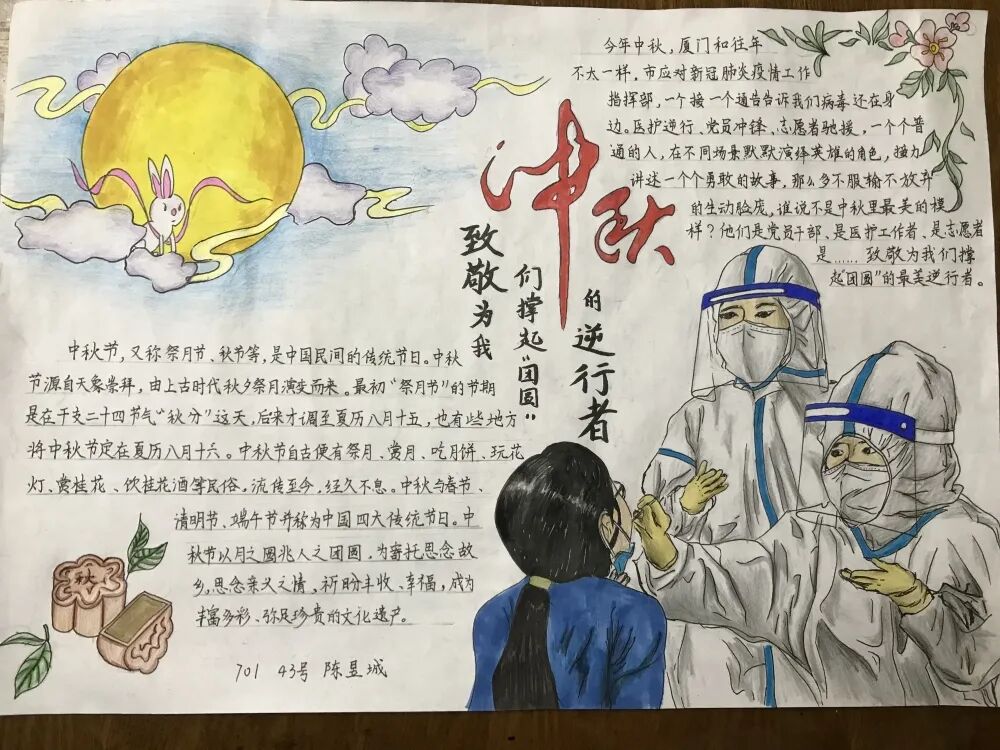 中秋
致敬为我
们撑起“团圆”
的逆行者
今年中秋，厦门和往年
不太一样，市应对新冠肺炎疫情工作
指挥部，一个接一个通告告诉我们病毒还在身
边。医护逆行、党员冲锋、志愿者驰援，一个个普
通的人，在不同场景默默演绎英雄的角色，接力
讲述一个个勇敢的故事，那么多不服输不放弃
的生动脸庞，谁说不是中秋里最美的模
样？他们是党员干部、是医护工作者、是志愿者
是……致敬为我们撑
起“团圆”的最美逆行者。
中秋节，又称祭月节、秋节等，是中国民间的传统节日。中秋
节源自天象崇拜，由上古时代秋夕祭月演变而来。最初“祭月节”的节期
是在干支二十四节气“秋分”这天，后来才调至夏历八月十五，也有些地方
将中秋节定在夏历八月十六。中秋节自古便有祭月、赏月、吃月饼、玩花
灯、赏桂花、饮桂花酒等民俗，流传至今，经久不息。中秋与春节、
清明节、端午节并称为中国四大传统节日。中
秋节以月之圆兆人之团圆，为寄托思念故
乡，思念亲人之情，祈盼丰收、幸福，成为
丰富多彩、弥足珍贵的文化遗产。
秋
701 43号 陈昱城